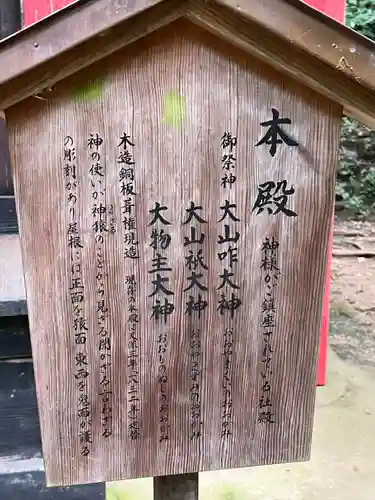 本殿
神様がご鎮座されている社殿
御祭神 大山咋大神 おおやまくいのおおかみ
大山祇大神 おおやまずみのおおかみ
大物主大神 おおものぬしのおおかみ
木造銅板葺権現造 現在の本殿は天保三年(一八三二年)建替
神の使いが、神猿のことから見ざる聞かざる言わざる
の彫刻があり屋根には正面を猿面 東西を鬼面が護る